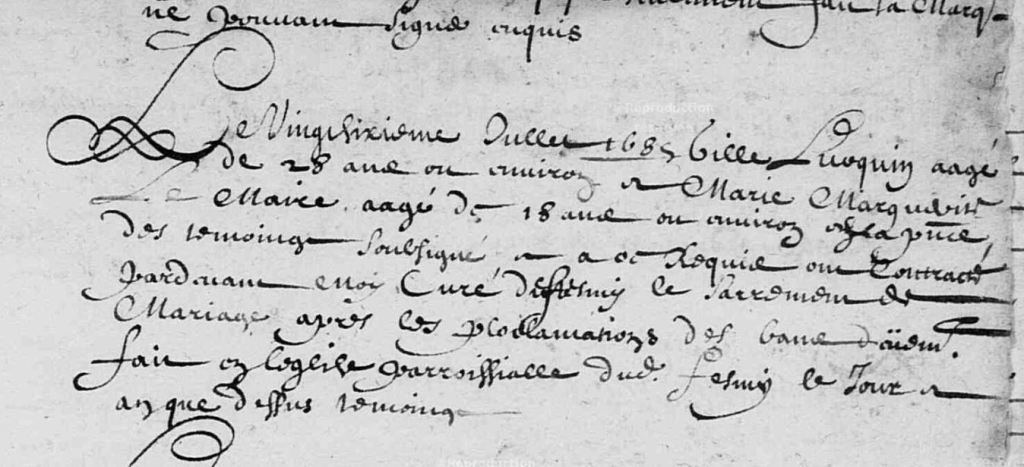 fait la Marq
ne pouvant signe enquis
Reproduction
Le Vingtsixieme Jullet 1685 Gille Luoquin aagé
de 28 ans ou environ et Marie Marguerit
Le Maire aagé de 18 ans ou environ en la pnce
des temoings soubsigné et a ce Requis ont Contracté
pardevant Moy Curé de fesmy le Sacrement de
Mariage apres les proclamations des bans duem.
fait en leglise parroissialle dud. fesmy le Jour et
an que dessus temoings
Reproduction